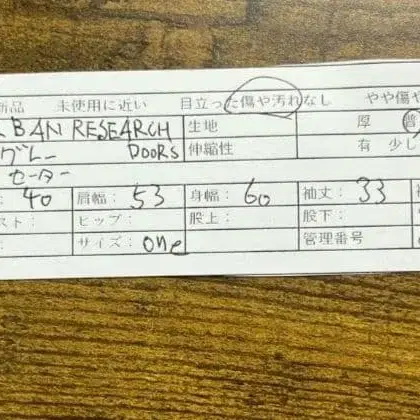 新品 未使用に近い 目立った傷や汚れなし やや傷や
BAN RESEARCH 生地 厚 普
グレー DOORS 伸縮性 有 少し
セーター
: 40 肩幅: 53 身幅: 60 袖丈: 33
スト: ヒップ: 股上: 股下:
: サイズ: one 管理番号